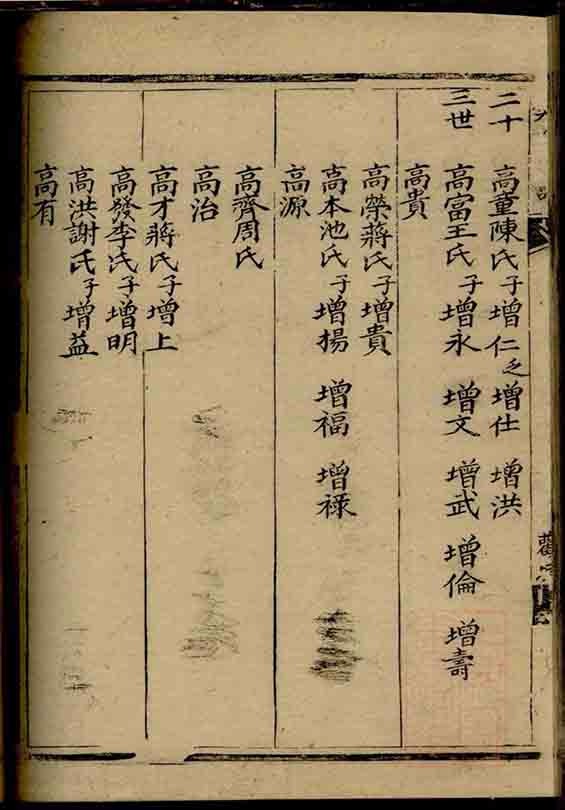 二十三世
高童陳氏子增仁乏增仕 增洪
高富王氏子增永 增文 增武 增倫 增壽
高貴
高榮蔣氏子增貴
高本池氏子增揚 增福 增祿
高源
高齊周氏
高治
高才蔣氏子增上
高發李氏子增明
高洪謝氏子增益
高有